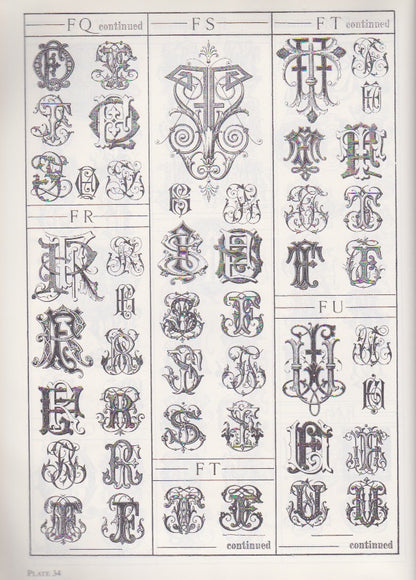 FQ continued
FR
FS
FT
continued
FT continued
FU
continued
PLATE 34